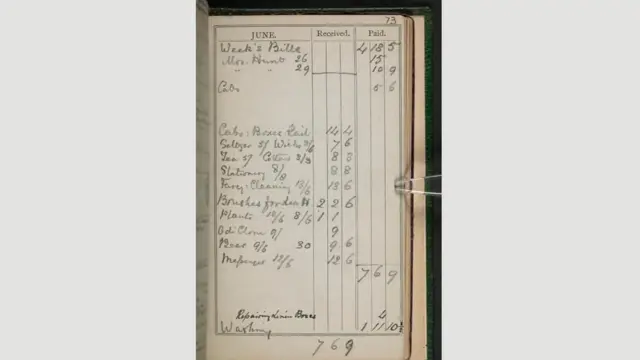 73
JUNE. Received. Paid.
Week's Bills 4 18 5
Mrs. Hunt 26 15
" " 29 10 9
Cabs 5 6
Cabs: Boxes Rail 14 4
Seltzer 5/ 2/6 7 6
5/ 3/3 8 3
Stationery 8/8 8 8
Cleaning 13/6 13 6
Brushes 2 2 6
Plants 12/6 8/6 1 1
9/ 9
Beer 9/6 30 9 6
Messenger 12/6 12 6
7 6 9
Repairing Linen Boxes 4
Washing 1 11 10½
7 6 9